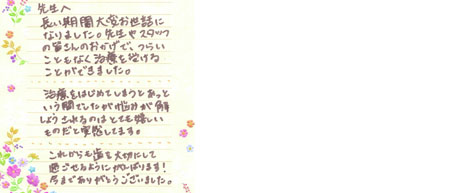 先生へ
長い期間大変お世話に
なりました。先生やスタッフ
の皆さんのおかげで、つらい
こともなく治療を受ける
ことができました。
治療をはじめてしまうとあっと
いう間でしたが悩みが解
しょうされるのはとても嬉しい
ものだと実感してます。
これからも歯を大切にして
過ごせるようにがんばります!
今までありがとうございました。